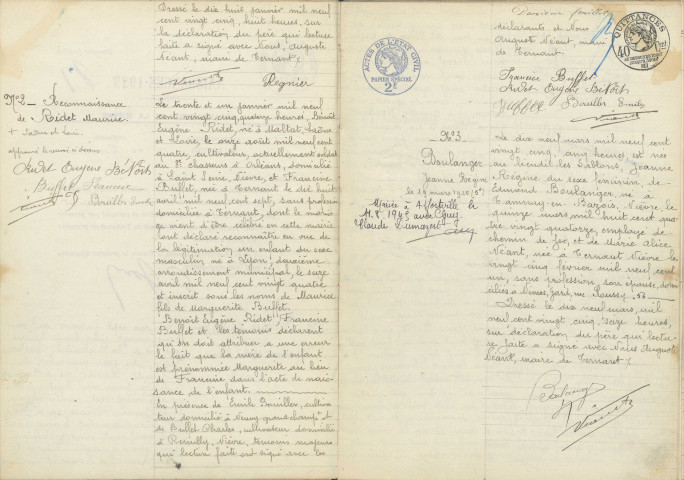 Dressé le dix huit janvier mil neuf
cent vingt cinq, huit heures, sur
la déclaration du père qui lecture
faite a signé avec Nous, Auguste
Néant, maire de Ternant.
Regnier
N°2 - Reconnaissance
de Ridet Maurice.
+ Saône et Loire.
approuvé
Ridet Eugène Benoit
Buffet Francine
Le trente et un janvier mil neuf
cent vingt cinq, quinze heures, Benoit
Eugène Ridet, né à Maltat, Saône
et Loire, le onze août mil neuf cent
quatre, cultivateur, actuellement soldat
au chasseurs à Orléans, domicilié
à Saint Seine, Nièvre, et Francine
Buffet, née à Ternant le dix huit
avril mil neuf cent sept, sans profession
domiciliée à Ternant, dont le maria-
ge vient d'être célébré en cette mairie
ont déclaré reconnaître en vue de
la légitimation un enfant du sexe
masculin, né à Dijon, deuxième
arrondissement municipal, le seize
avril mil neuf cent vingt quatre
et inscrit sous les noms de Maurice
fils de Marguerite Buffet.
Benoit Eugène Ridet, Francine
Buffet et les témoins déclarent
qu'on doit attribuer à une erreur
le fait que la mère de l'enfant
est prénommée Marguerite au lieu
de Francine dans l'acte de nais-
sance de l'enfant.
En présence de Emile Bouiller, cultiva-
teur domicilié à
de Buffet Charles, cultivateur domicilié
à Remilly, Nièvre, témoins majeurs
qui lecture faite ont signé avec les
ACTES DE L'ETAT CIVIL
PAPIER SPECIAL
2F
Deuxième feuillet
déclarants et Nous
Auguste Néant, maire
de Ternant.
QUITTANCES
40
Francine Buffet
Ridet Eugène Benoit
Buffet Bouiller Emile
N°3
Boulanger
Jeanne Régine
le 19 mars 1925 (5h)
Mariée à Alfortville le
11.8.1945 avec Guy
Claude Dumazet
Le dix neuf mars mil neuf cent
vingt cinq, cinq heures, est née
au lieu dit les Sablons, Jeanne
Régine du sexe féminin, de
Edmond Boulanger, né à
Tamnay-en-Bazois, Nièvre, le
quinze mars mil huit cent qua-
tre vingt quatorze, employé de
chemin de fer, et de Marie Alice
Néant, née à Ternant Nièvre le
vingt cinq février mil neuf cent
un, sans profession, son épouse, domi-
ciliés à Nîmes, Gard, rue Roussy, 53.
Dressé le dix neuf mars, mil
neuf cent vingt cinq, seize heures,
sur déclaration du père qui, lectu-
re faite a signé avec Nous Auguste
Néant, maire de Ternant.
Boulanger